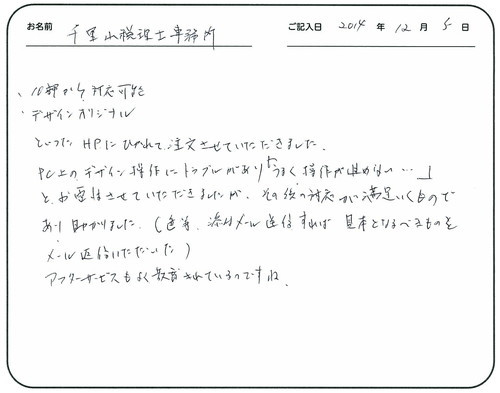 お名前 千里山税理士事務所 ご記入日 2014 年 12 月 5 日
、10部から対応可能
・デザインオリジナル
といった HPにひかれて注文させていただきました。
PC上のデザイン操作にトラブルがあり「うまく操作が進めない…」
と、お電話させていただきましたが、その後の対応が満足いくもので
あり助かりました。(色等、添付メール送信すれば 見本となるべきものを
メール返信いただいた)
アフターサービスもよく教育されているのですね。